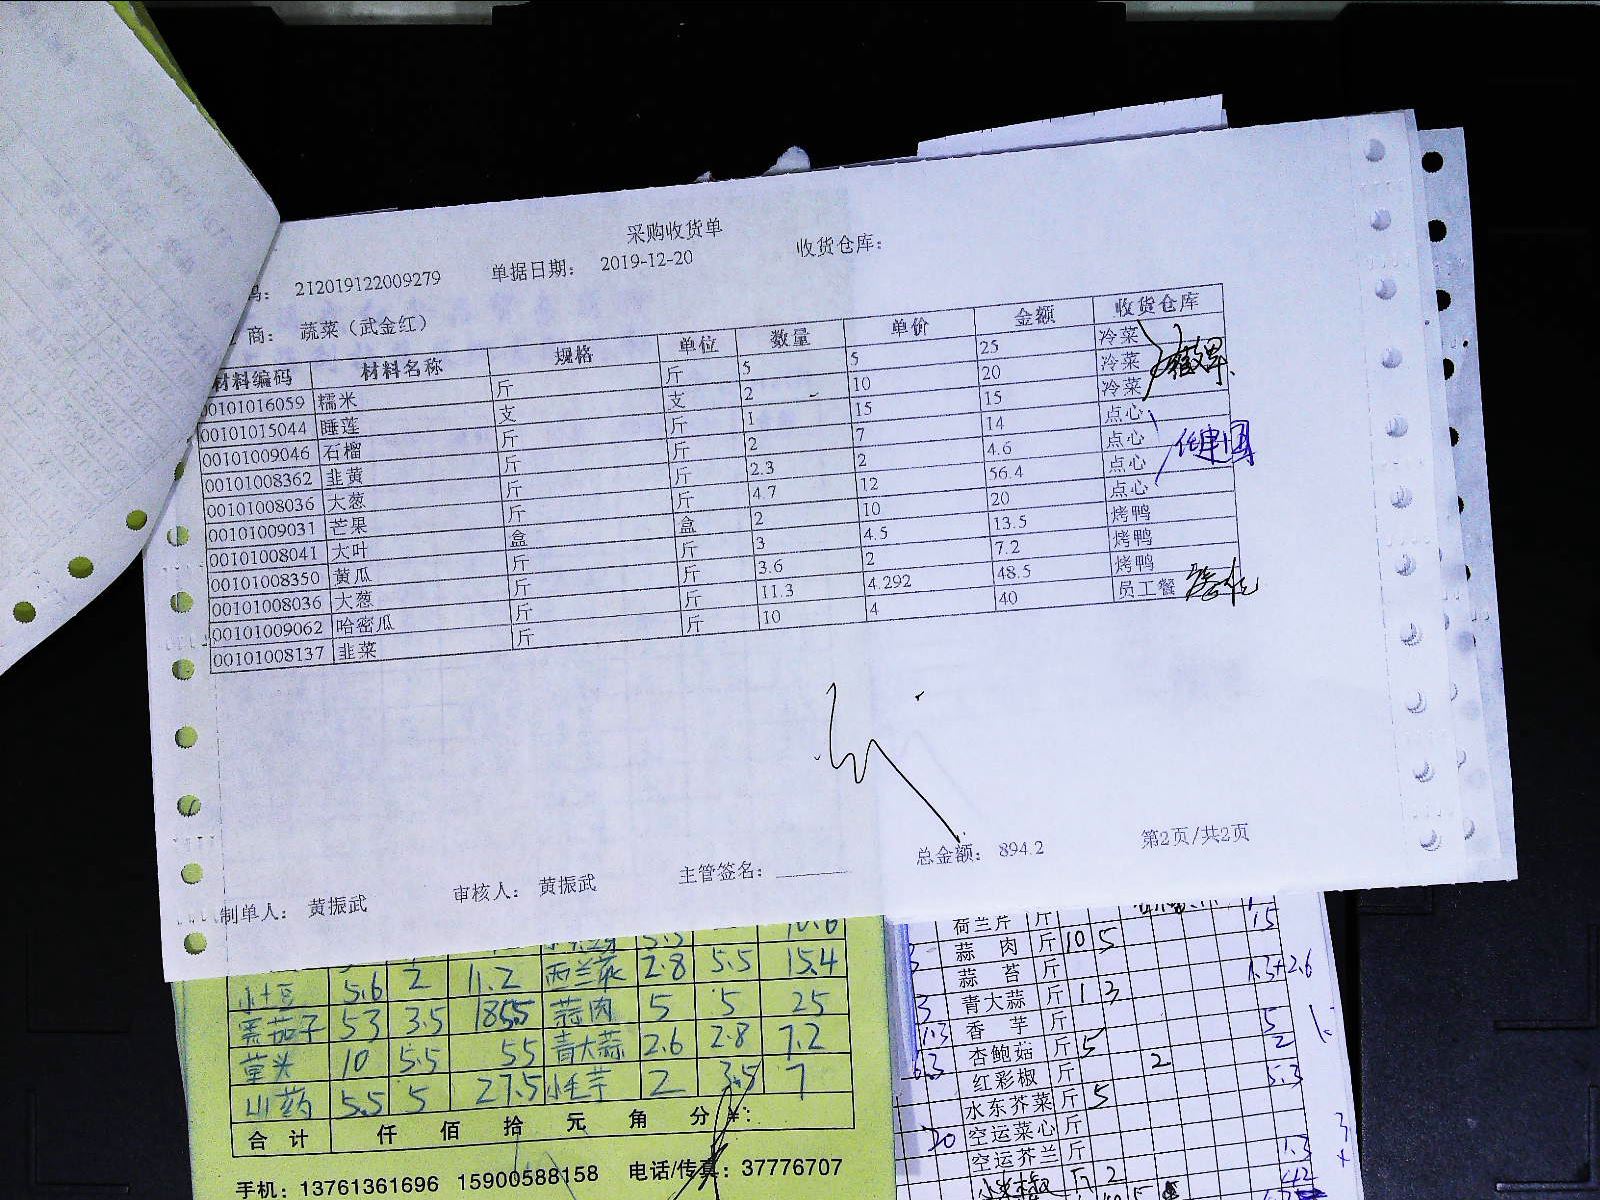 采购收货单
码： 212019122009279 单据日期： 2019-12-20 收货仓库：
商： 蔬菜（武金红）
材料编码 材料名称 规格 单位 数量 单价 金额 收货仓库
00101016059 糯米 斤 斤 5 5 25 冷菜
00101015044 睡莲 支 支 2 10 20 冷菜
00101009046 石榴 斤 斤 1 15 15 冷菜
00101008362 韭黄 斤 斤 2 7 14 点心
00101008036 大葱 斤 斤 2.3 2 4.6 点心
00101009031 芒果 斤 斤 4.7 12 56.4 点心
00101008041 大叶 盒 盒 2 10 20 点心
00101008350 黄瓜 斤 斤 3 4.5 13.5 烤鸭
00101008036 大葱 斤 斤 3.6 2 7.2 烤鸭
00101009062 哈密瓜 斤 斤 11.3 4.292 48.5 烤鸭
00101008137 韭菜 斤 斤 10 4 40 员工餐
制单人： 黄振武 审核人： 黄振武 主管签名： 总金额： 894.2 第2页/共2页
10.6
小土豆 5.6 2 11.2 西兰花 2.8 5.5 15.4
黑茄子 53 3.5 185.5 蒜肉 5 5 25
10 5.5 55 青大蒜 2.6 2.8 7.2
山药 5.5 5 27.5 小毛芋 2 3.5 7
合计 仟 佰 拾 元 角 分 ¥：
手机：13761361696 15900588158 电话/传真：37776707
荷兰芹 斤 15
蒜肉 斤 10 5
蒜苔 斤 1.3+2.6
青大蒜 斤 1 3
香芋 斤 5
杏鲍菇 斤 5 2
红彩椒 斤 2 5.3
水东芥菜 斤 5
空运菜心 斤
空运芥兰 斤 1.3
斤 2